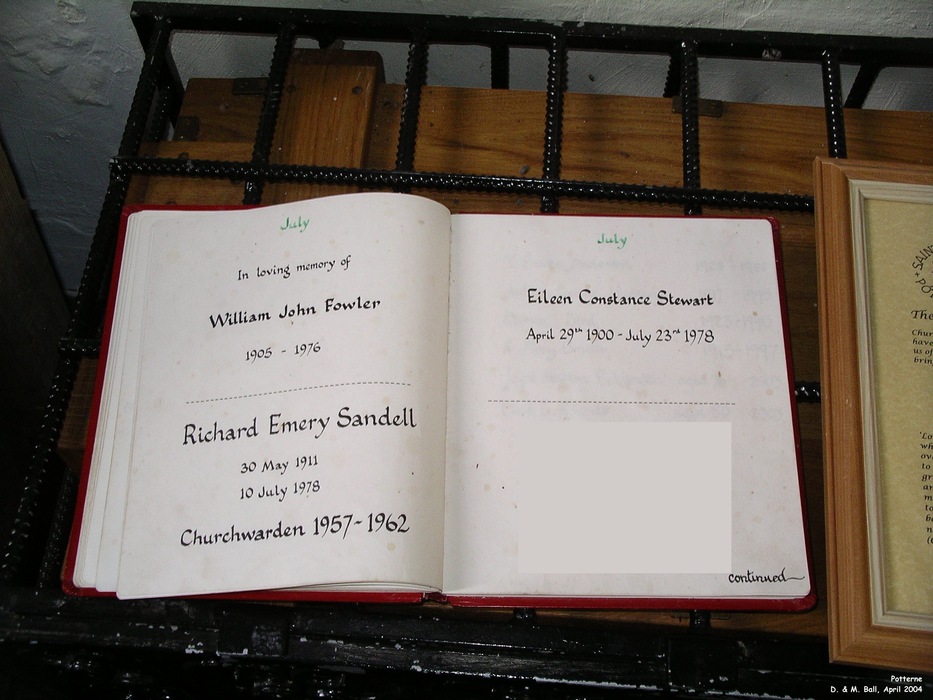 July
In loving memory of
William John Fowler
1905 - 1976
Richard Emery Sandell
30 May 1911
10 July 1978
Churchwarden 1957-1962
July
Eileen Constance Stewart
April 29th 1900 - July 23rd 1978
continued
SAIN
The
Chur
have
us of
brin
Potterne
D. & M. Ball, April 2004